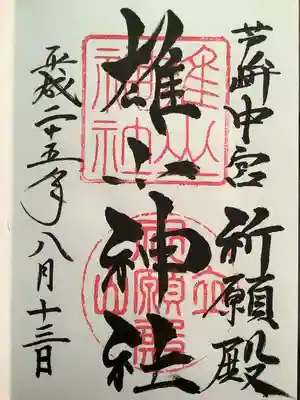 芦峅中宮 祈願殿
雄山神社
平成二十五年 八月十三日
雄山神社
立山
祈願殿